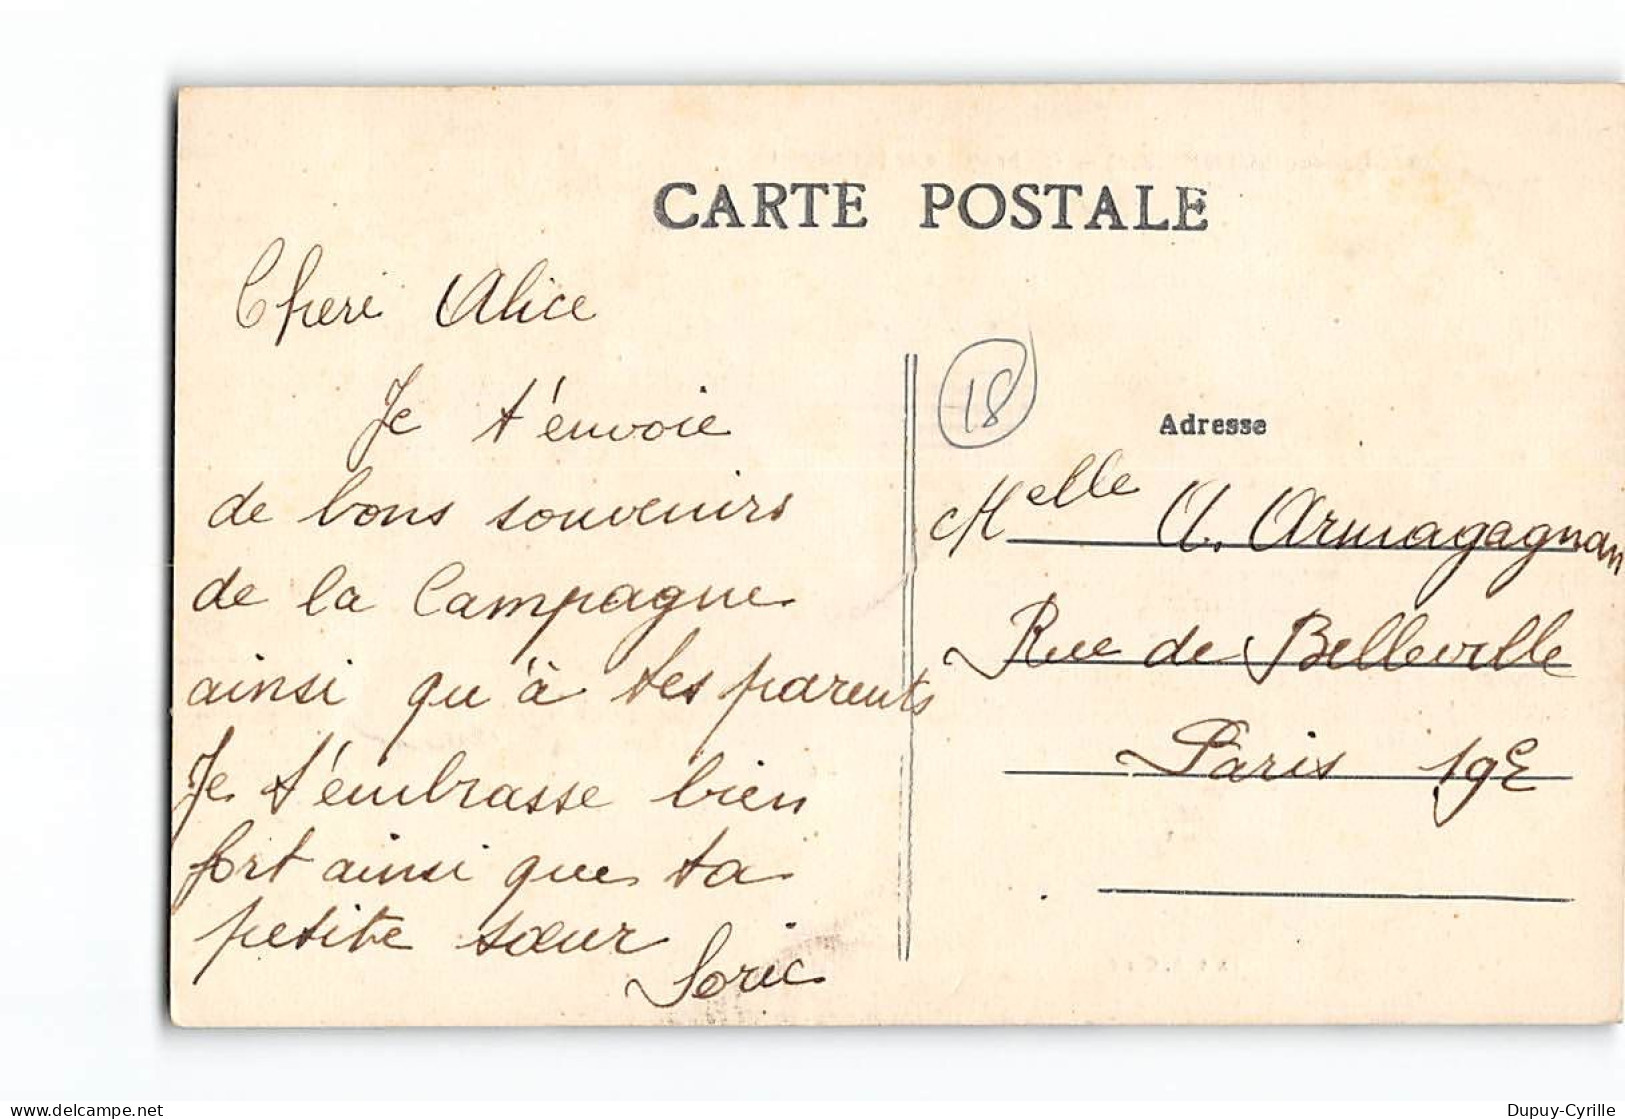 CARTE POSTALE
Cheri Alice
Je t'envoie
de bons souvenirs
de la Campagne
ainsi qu'à tes parents
Je t'embrasse bien
fort ainsi que ta
petite sœur
18
Adresse
Melle A. Armagagnan
Rue de Belleville
Paris 19e
delcampe.net
Dupuy-Cyrille